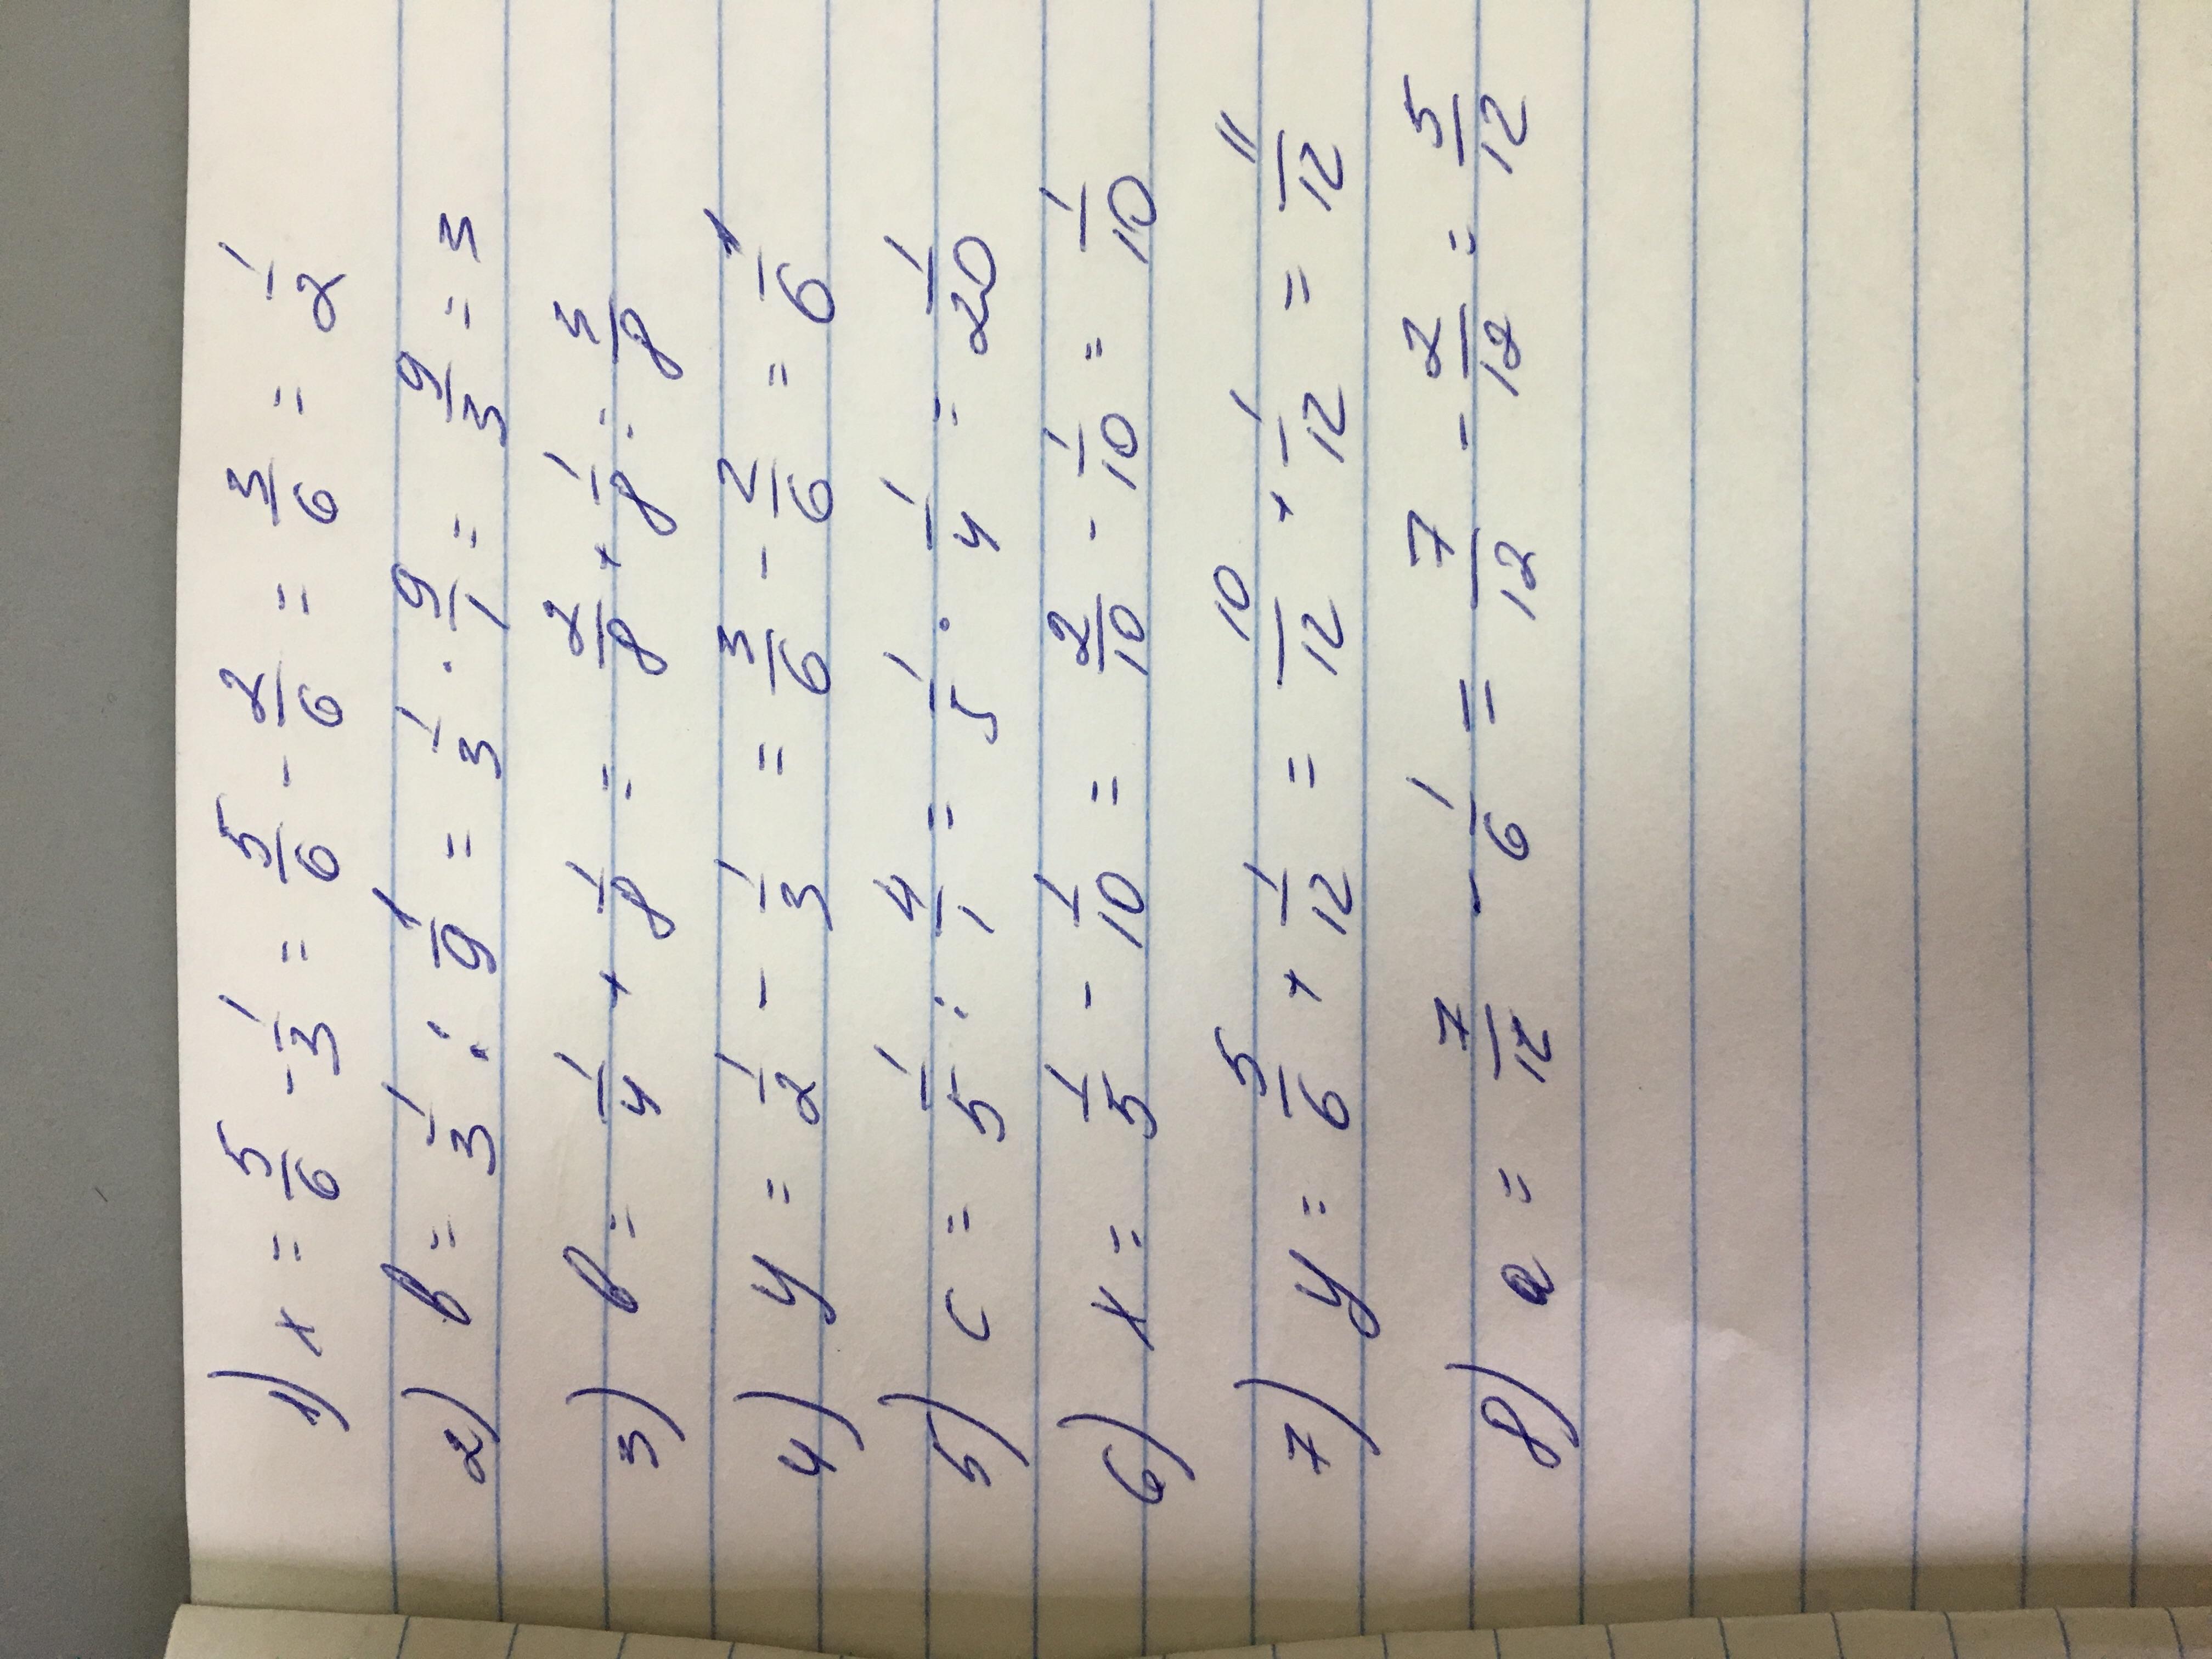 1) x = 5/6 - 1/3 = 5/6 - 2/6 = 3/6 = 1/2
2) b = 1/3 : 1/9 = 1/3 · 9/1 = 9/3 = 3
3) b = 1/4 + 1/8 = 2/8 + 1/8 = 3/8
4) y = 1/2 - 1/3 = 3/6 - 2/6 = 1/6
5) c = 1/5 : 4/1 = 1/5 · 1/4 = 1/20
6) x = 1/5 - 1/10 = 2/10 - 1/10 = 1/10
7) y = 5/6 + 1/12 = 10/12 + 1/12 = 11/12
8) a = 7/12 - 1/6 = 7/12 - 2/12 = 5/12